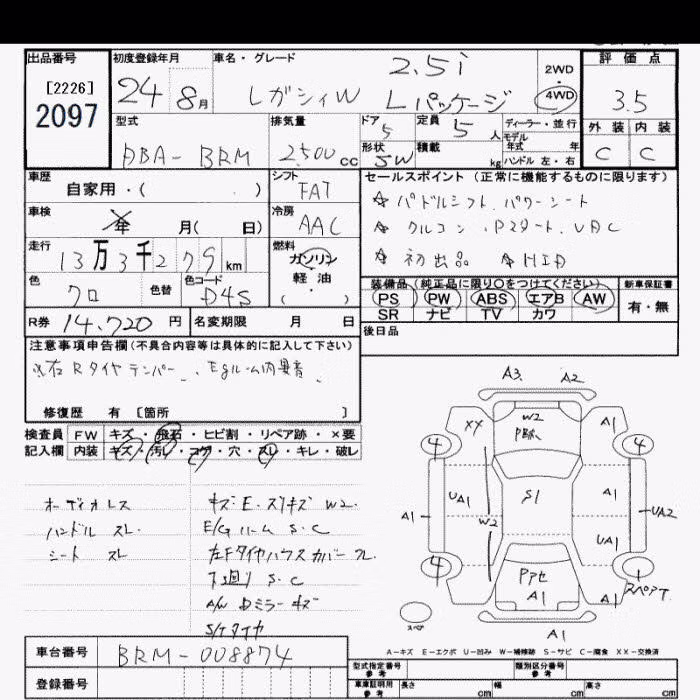 出品番号 初度登録年月 車名・グレード 評価点
[2226]
2097
24 8月
レガシィW 2.5i Lパッケージ
2WD・4WD
3.5
外装 内装
C C
型式 排気量 ドア 定員 ディーラー・並行
DBA-BRM 2500cc 5 5人
モデル年式 年式
形状 SW 積載 kg ハンドル 左・右
車歴 自家用・( ) シフト FAT
セールスポイント(正常に機能するものに限ります)
☆パドルシフト、パワーシート
☆クルコン、Pスタート、VDC
☆初出品 ☆HID
車検 年 月( 日) 冷房 AAC
走行 13万3千279km 燃料 ガソリン・軽油・( )
色 クロ 色替 色コード D4S
装備品(純正品に限り○をつけてください) 新車保証書
PS PW ABS エアB AW 有・無
SR ナビ TV カワ
R券 14,720円 名変期限 月 日
後日品
注意事項申告欄(不具合内容等は具体的に記入して下さい)
※右Rタイヤテンパー、Egルーム内異音
修復歴 有 [箇所 ]
検査員記入欄 FW キズ・飛石・ヒビ割・リペア跡・×要
内装 キズ・汚レ・コゲ・穴・スレ・キレ・破レ
オーディオレス
ハンドル スレ
シート スレ
キズ・E・スリキズ W2
E/Gルーム S・C
左Fタイヤハウスカバー フレ
下廻り S・C
A/W Dミラー キズ
S/Tタイヤ
A3 A2
W2
XX A1
4 4
S1
UA1 A1
A1 W2 UA2
UA1
4 スペアT
A1 A1
スペア
A1
A-キズ E-エクボ U-凹み W-補修跡 S-サビ C-腐食 XX-交換済
車台番号 BRM-008874
登録番号
型式指定番号 参考 類別区分番号 参考
車庫証明用 参考 長さ cm 幅 cm 高さ cm